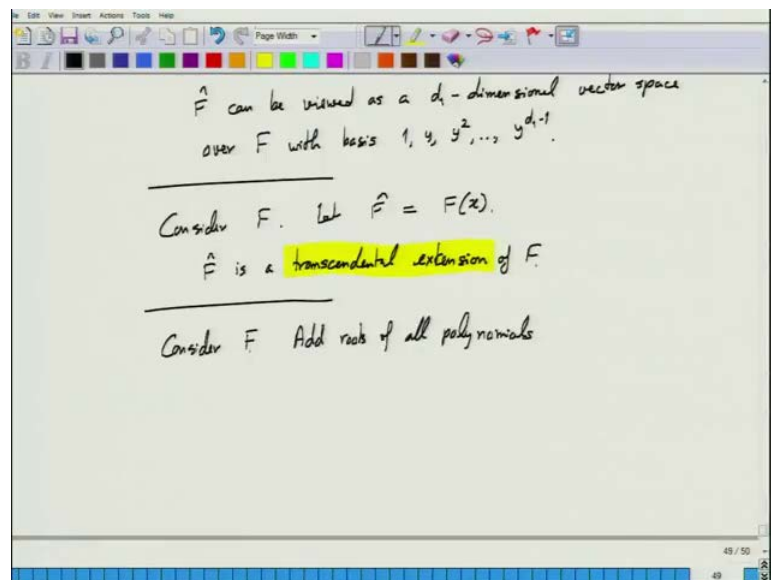 File Edit View Insert Actions Tools Help
Page Width
B I
F̂ can be viewed as a d₁-dimensional vector space
over F with basis 1, y, y², .., y^{d₁-1}.
Consider F. Let F̂ = F(x).
F̂ is a transcendental extension of F.
Consider F. Add roots of all polynomials
49 / 50
49